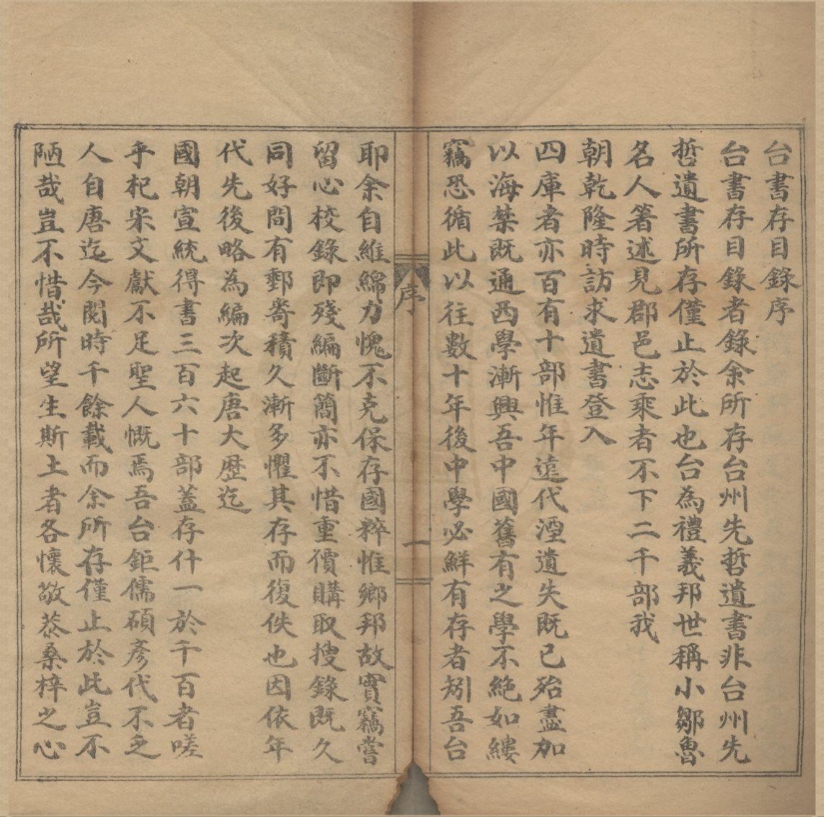 台書存目錄序
台書存目錄者錄余所存台州先哲遺書非台州先
哲遺書所存僅止於此也台為禮義邦世稱小鄒魯
名人箸述見郡邑志乘者不下二千部我
朝乾隆時訪求遺書登入
四庫者亦百有十部惟年遠代湮遺失既已殆盡加
以海禁既通西學漸興吾中國舊有之學不絕如縷
竊恐循此以往數十年後中學必鮮有存者矧吾台
序
一
耶余自維綿力愧不克保存國粹惟鄉邦故實竊嘗
留心校錄即殘編斷簡亦不惜重價購取搜錄既久
同好問有郵寄積久漸多懼其存而復佚也因依年
代先後略為編次起唐大歷迄
國朝宣統得書三百六十部蓋存什一於千百者嗟
乎杞宋文獻不足聖人慨焉吾台鉅儒碩彥代不乏
人自唐迄今閱時千餘載而余所存僅止於此豈不
陋哉豈不惜哉所望生斯土者各懷敬恭桑梓之心